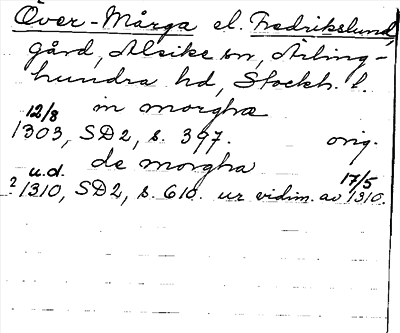 Över-Mårga el. Fredrikslund,
gård, Alsike sn, Ärling-
hundra hd, Stockh. l.
in morgha
12/8
1303, SD2, s. 397. orig.
de morgha
u.d. 17/5
? 1310, SD2, s. 610. ur vidim. av 1310.